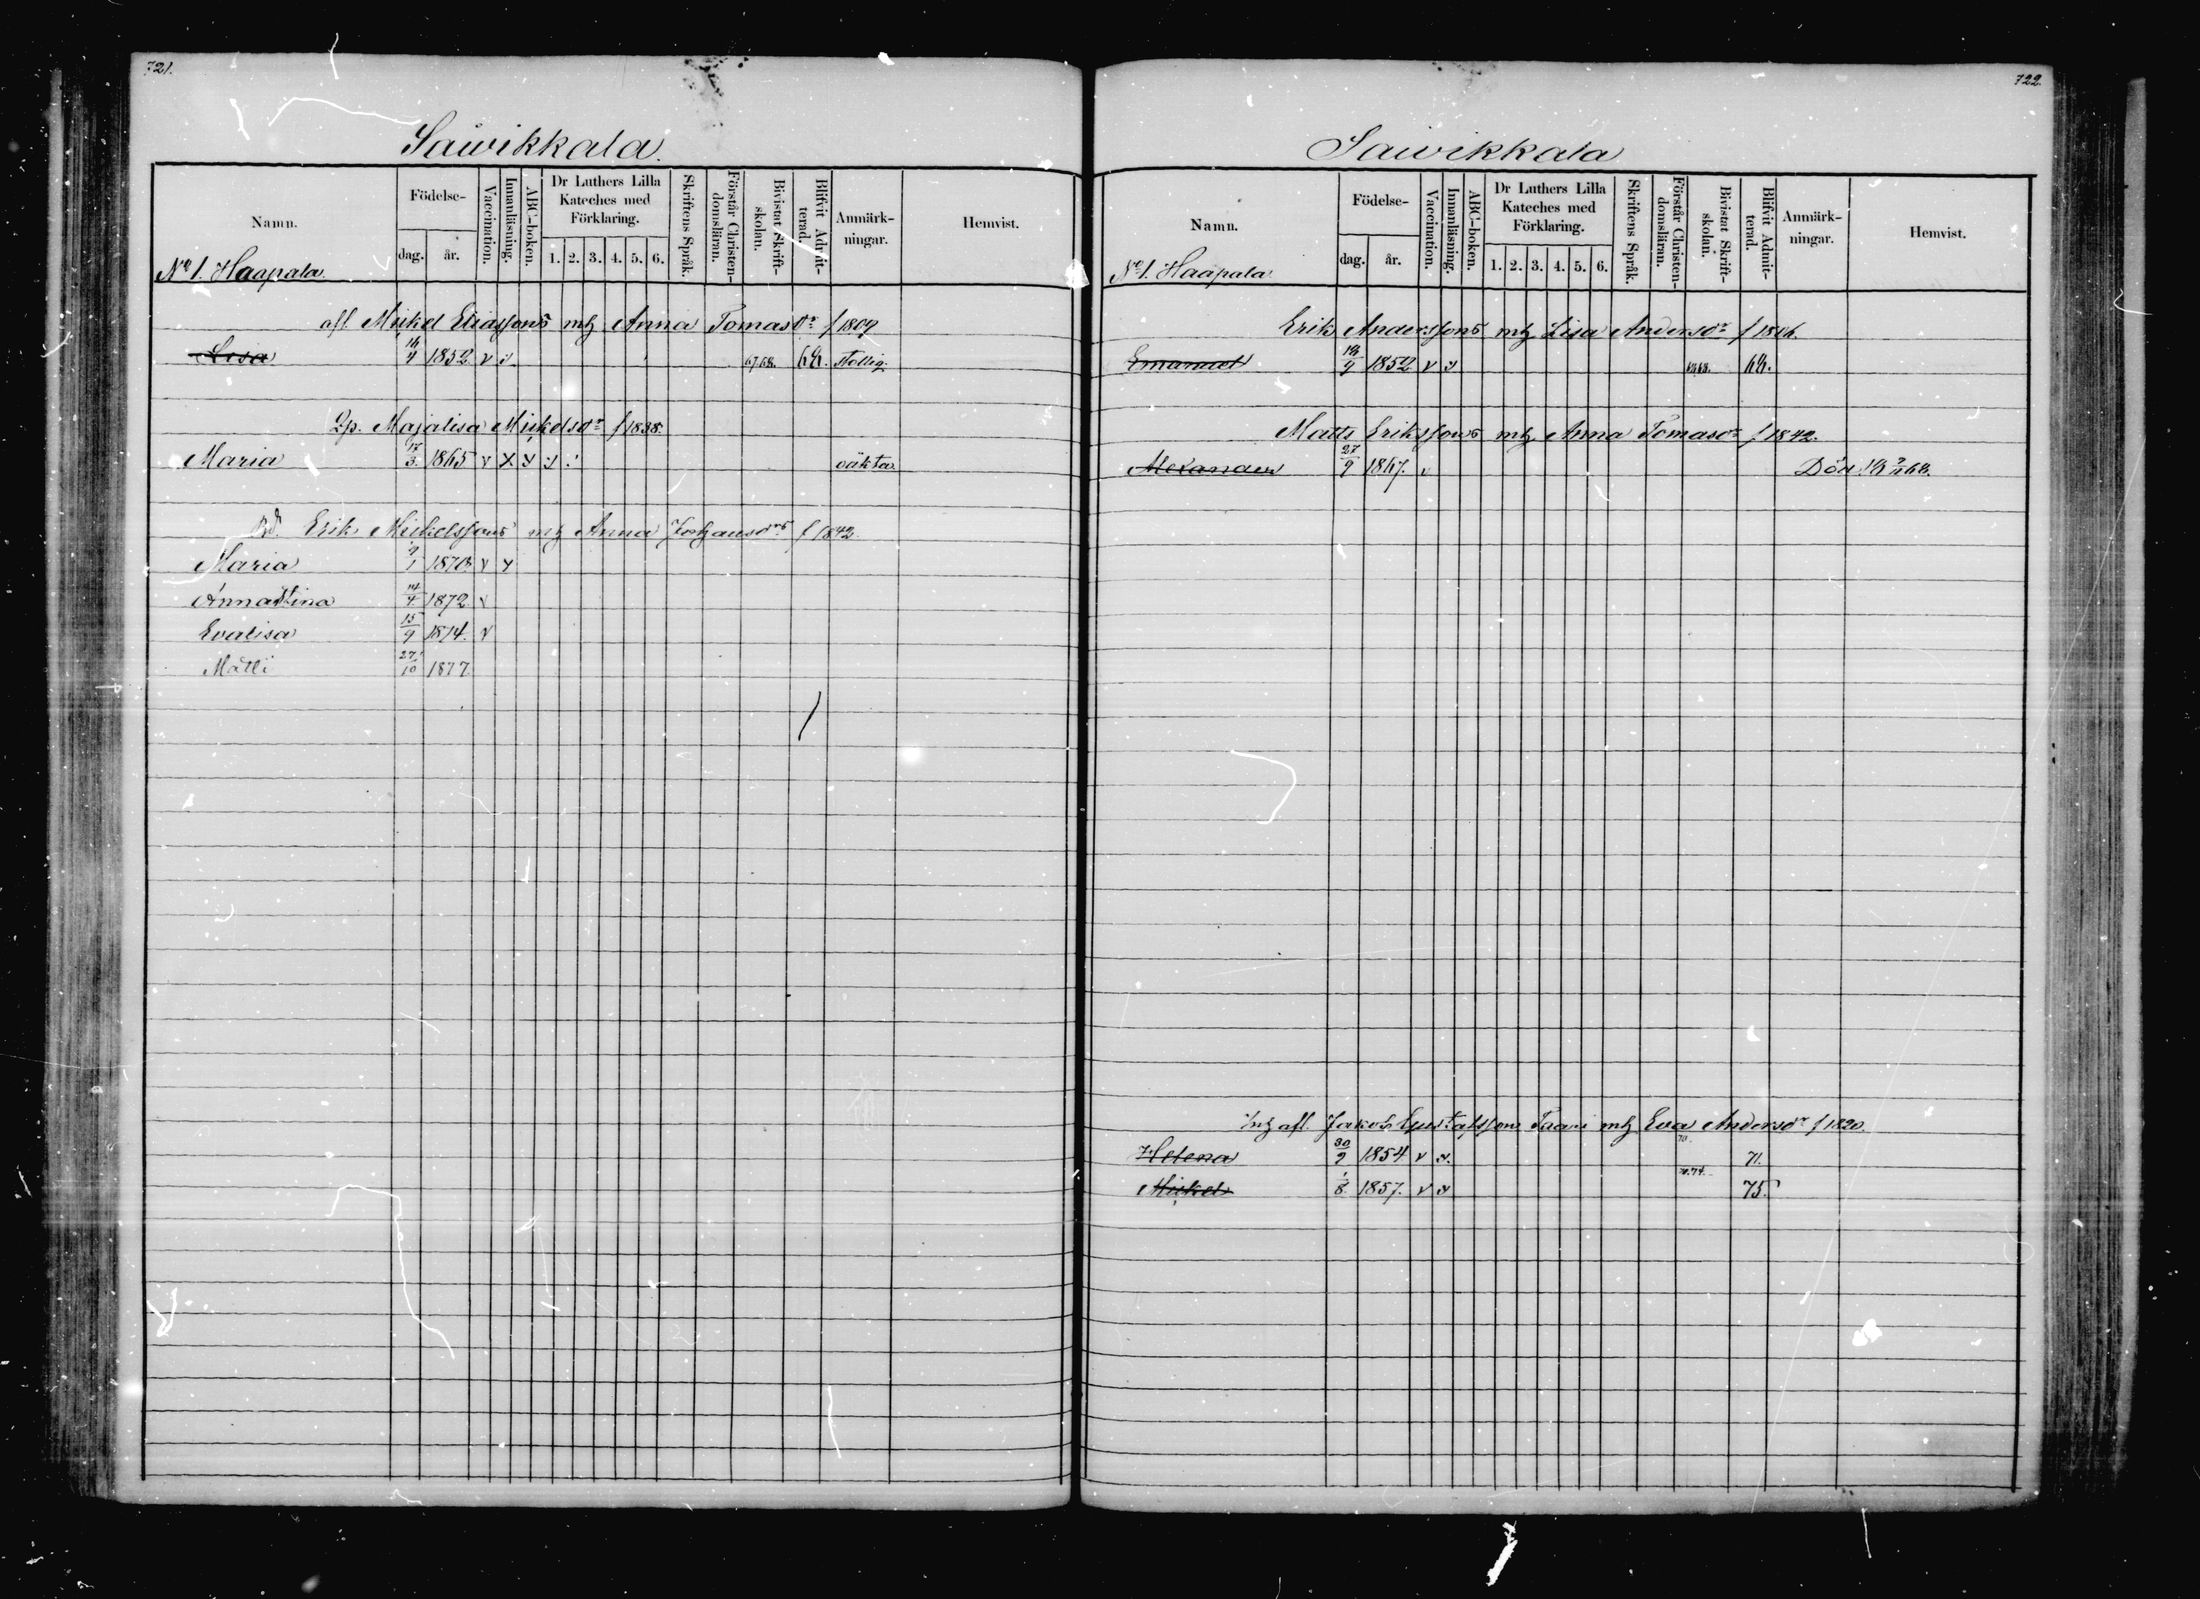 721.
Sawikkala.
Namn.
Födelse-
dag.
år.
Vaccination.
Innanläsning.
ABC-boken.
Dr Luthers Lilla
Kateches med
Förklaring.
1. 2. 3. 4. 5. 6.
Skriftens Språk.
Förstår Christen-
domsläran.
Bivistat Skrift-
skolan.
Blifvit Admit-
terad.
Anmärk-
ningar.
Hemvist.
No 1. Haapala.
afl. Mickel Eliassons mh Anna Tomasdr f 1809
Lisa 16/4 1852 v v. 67.68. 68.
Qp. Majalisa Mickelsdr f 1838.
Maria 17/3 1865 v x v v oäkta
Erik Mickelssons mh Anna f 1842.
Maria 9/1 1870 v v
Annastina 14/4 1872 v
Evalisa 15/9 1874. v
Matti 27/10 1877
722.
Sawikkala
Namn.
Födelse-
dag.
år.
Vaccination.
Innanläsning.
ABC-boken.
Dr Luthers Lilla
Kateches med
Förklaring.
1. 2. 3. 4. 5. 6.
Skriftens Språk.
Förstår Christen-
domsläran.
Bivistat Skrift-
skolan.
Blifvit Admit-
terad.
Anmärk-
ningar.
Hemvist.
No 1. Haapala
Erik Anderssons mh Lisa Andersdr f 1816.
Emanuel 1852 v v 68.
Matts Erikssons mh Anna Tomasdr f 1842.
Alexander 27/9 1867. v Död
Inh afl. Jakob Gustafsson Taari mh Eva Andersdr f 1820.
Helena 30/9 1854 v v. 70. 71.
Mickel 1/8 1857. v v 74. 75.